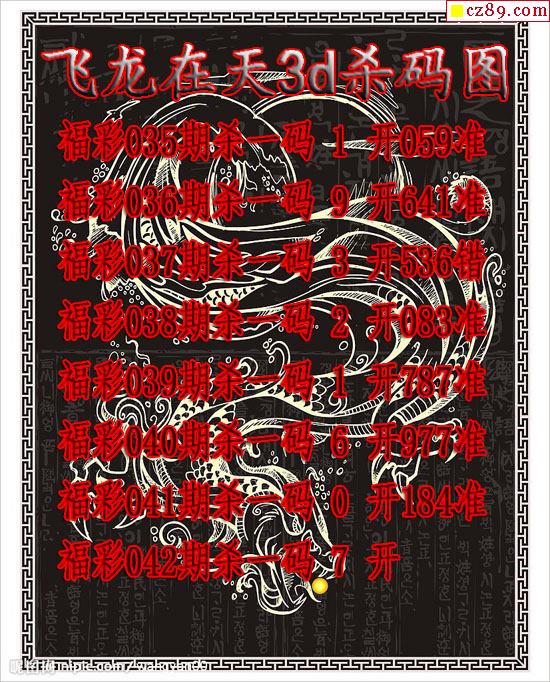 cz89.com
飞龙在天3d杀码图
福彩035期杀一码 1 开059准
福彩036期杀一码 9 开641准
福彩037期杀一码 3 开536错
福彩038期杀一码 2 开083准
福彩039期杀一码 1 开787准
福彩040期杀一码 6 开977准
福彩041期杀一码 0 开184准
福彩042期杀一码 7 开